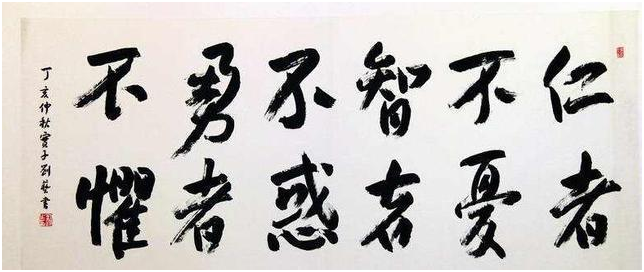 仁者
不憂
智者
不惑
勇者
不懼
丁亥仲秋寳子劉藝書